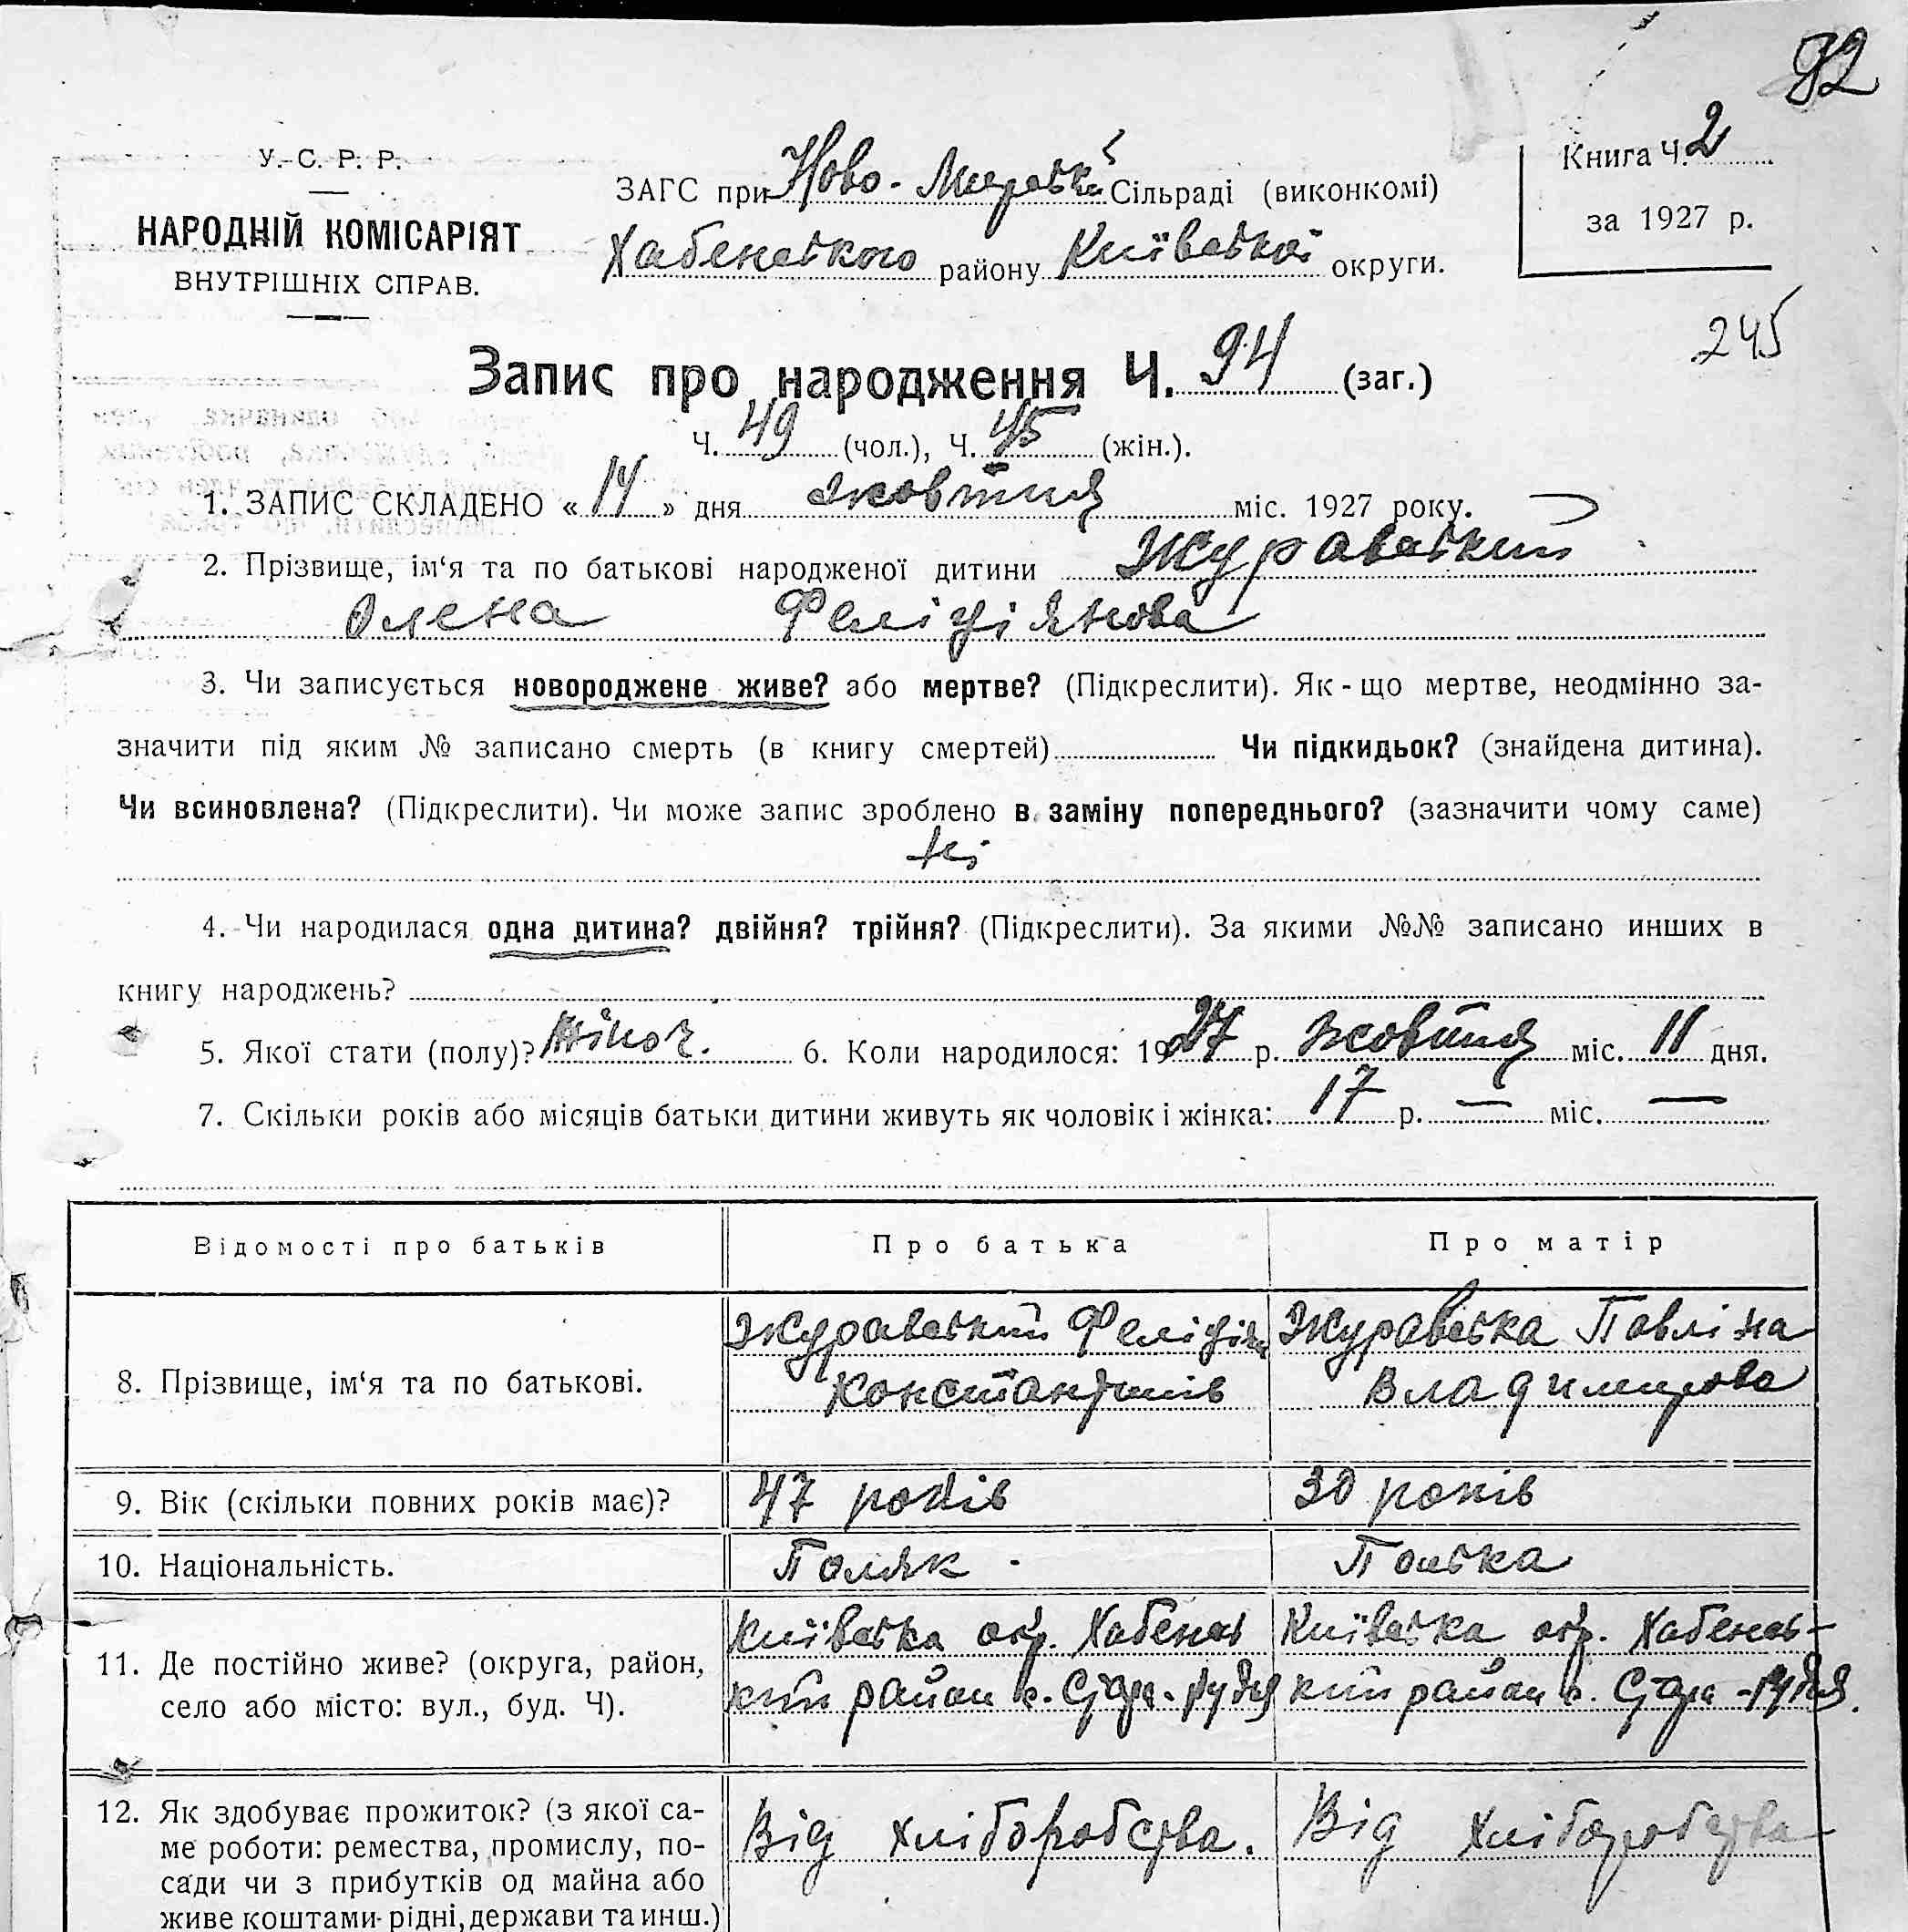 92
У.-С. Р. Р.
НАРОДНІЙ КОМІСАРІЯТ
ВНУТРІШНІХ СПРАВ.
ЗАГС при Ново-Мирській Сільраді (виконкомі)
Хабенського району Київської округи.
Книга Ч. 2
за 1927 р.
245
Запис про народження Ч. 94 (заг.)
Ч. 49 (чол.), Ч. 45 (жін.).
1. ЗАПИС СКЛАДЕНО «14» дня жовтня міс. 1927 року.
2. Прізвище, ім‘я та по батькові народженої дитини Журавський
Олена Феліціянова
3. Чи записується новороджене живе? або мертве? (Підкреслити). Як-що мертве, неодмінно за-
значити під яким № записано смерть (в книгу смертей) Чи підкидьок? (знайдена дитина).
Чи всиновлена? (Підкреслити). Чи може запис зроблено в заміну попереднього? (зазначити чому саме)
ні
4. Чи народилася одна дитина? двійня? трійня? (Підкреслити). За якими №№ записано инших в
книгу народжень?
5. Якої стати (полу)? жіноч. 6. Коли народилося: 1927 р. жовтня міс. 11 дня.
7. Скільки років або місяців батьки дитини живуть як чоловік і жінка: 17 р. — міс. —
Відомості про батьків Про батька Про матір
8. Прізвище, ім‘я та по батькові.
Журавський Феліціян
Константинів
Журавська Павліна
Владимирова
9. Вік (скільки повних років має)? 47 років 30 років
10. Національність. Поляк Полька
11. Де постійно живе? (округа, район,
село або місто: вул., буд. Ч).
Київська окр. Хабенсь
кий район с. Стара-рудня
Київська окр. Хабенсь-
кий район с. Стара-рудня.
12. Як здобуває прожиток? (з якої са-
ме роботи: ремества, промислу, по-
сади чи з прибутків од майна або
живе коштами рідні, держави та инш.)
Від хліборобства.
Від хліборобства